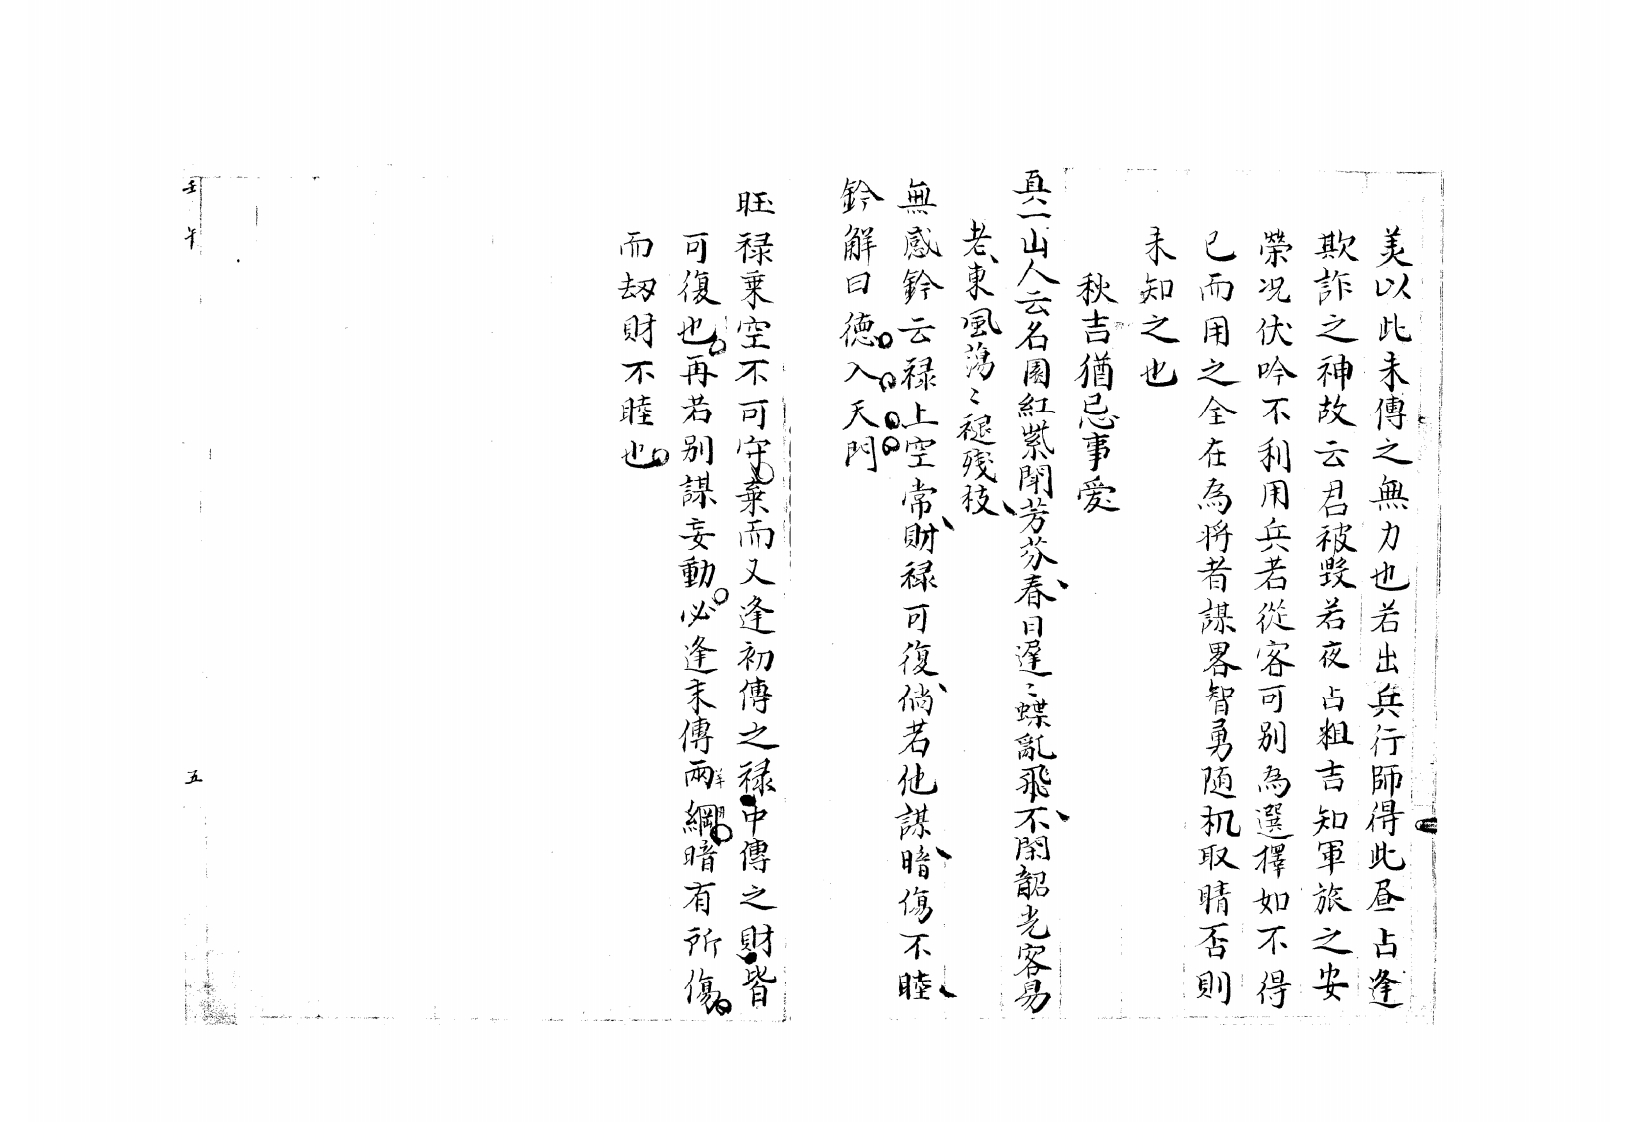 美以此未傳之無力也若出兵行師得此昼占逢
欺詐之神故云君被毀若夜占粗吉知軍旅之安
榮况伏吟不利用兵若從客可別為選擇如不得
已而用之全在為將者謀畧智勇随机取晴否則
未知之也
秋吉猶忌事愛
真一山人云名園紅紫闘芳芬春日遲〻蝶亂飛不閑韶光容易
老東風蕩〻褪殘枝
無感鈐云禄上空常財禄可復倘若他謀暗傷不睦
鈐解曰德入天門
旺禄乗空不可守棄而又逢初傳之禄中傳之財皆
可復也再若别謀妄動必逢末傳兩羊網暗有所傷
而刼財不睦也
壬午
五